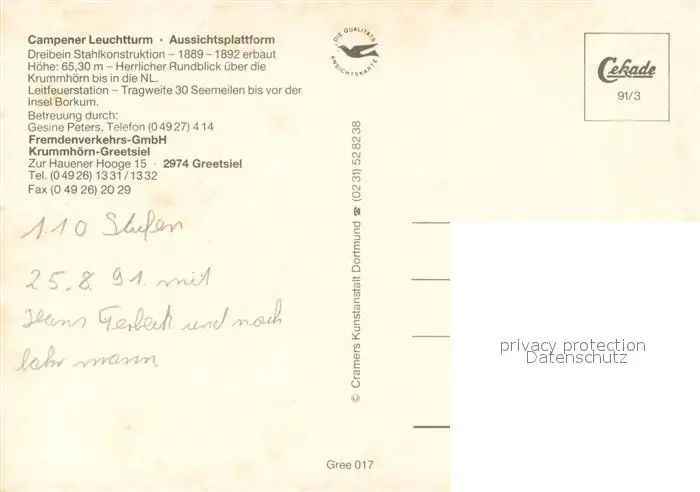 Campener Leuchtturm · Aussichtsplattform
Dreibein Stahlkonstruktion – 1889 – 1892 erbaut
Höhe: 65,30 m – Herrlicher Rundblick über die
Krummhörn bis in die NL.
Leitfeuerstation – Tragweite 30 Seemeilen bis vor der
Insel Borkum.
Betreuung durch:
Gesine Peters, Telefon (0 49 27) 4 14
Fremdenverkehrs-GmbH
Krummhörn-Greetsiel
Zur Hauener Hooge 15 · 2974 Greetsiel
Tel. (0 49 26) 13 31 / 13 32
Fax (0 49 26) 20 29
110 Stufen
25.8.91 mit
Hans und noch
mann.
DIE QUALITÄTS
ANSICHTSKARTE
© Cramers Kunstanstalt Dortmund ☎ (02 31) 52 82 38
Cekade
91/3
privacy protection
Datenschutz
Gree 017